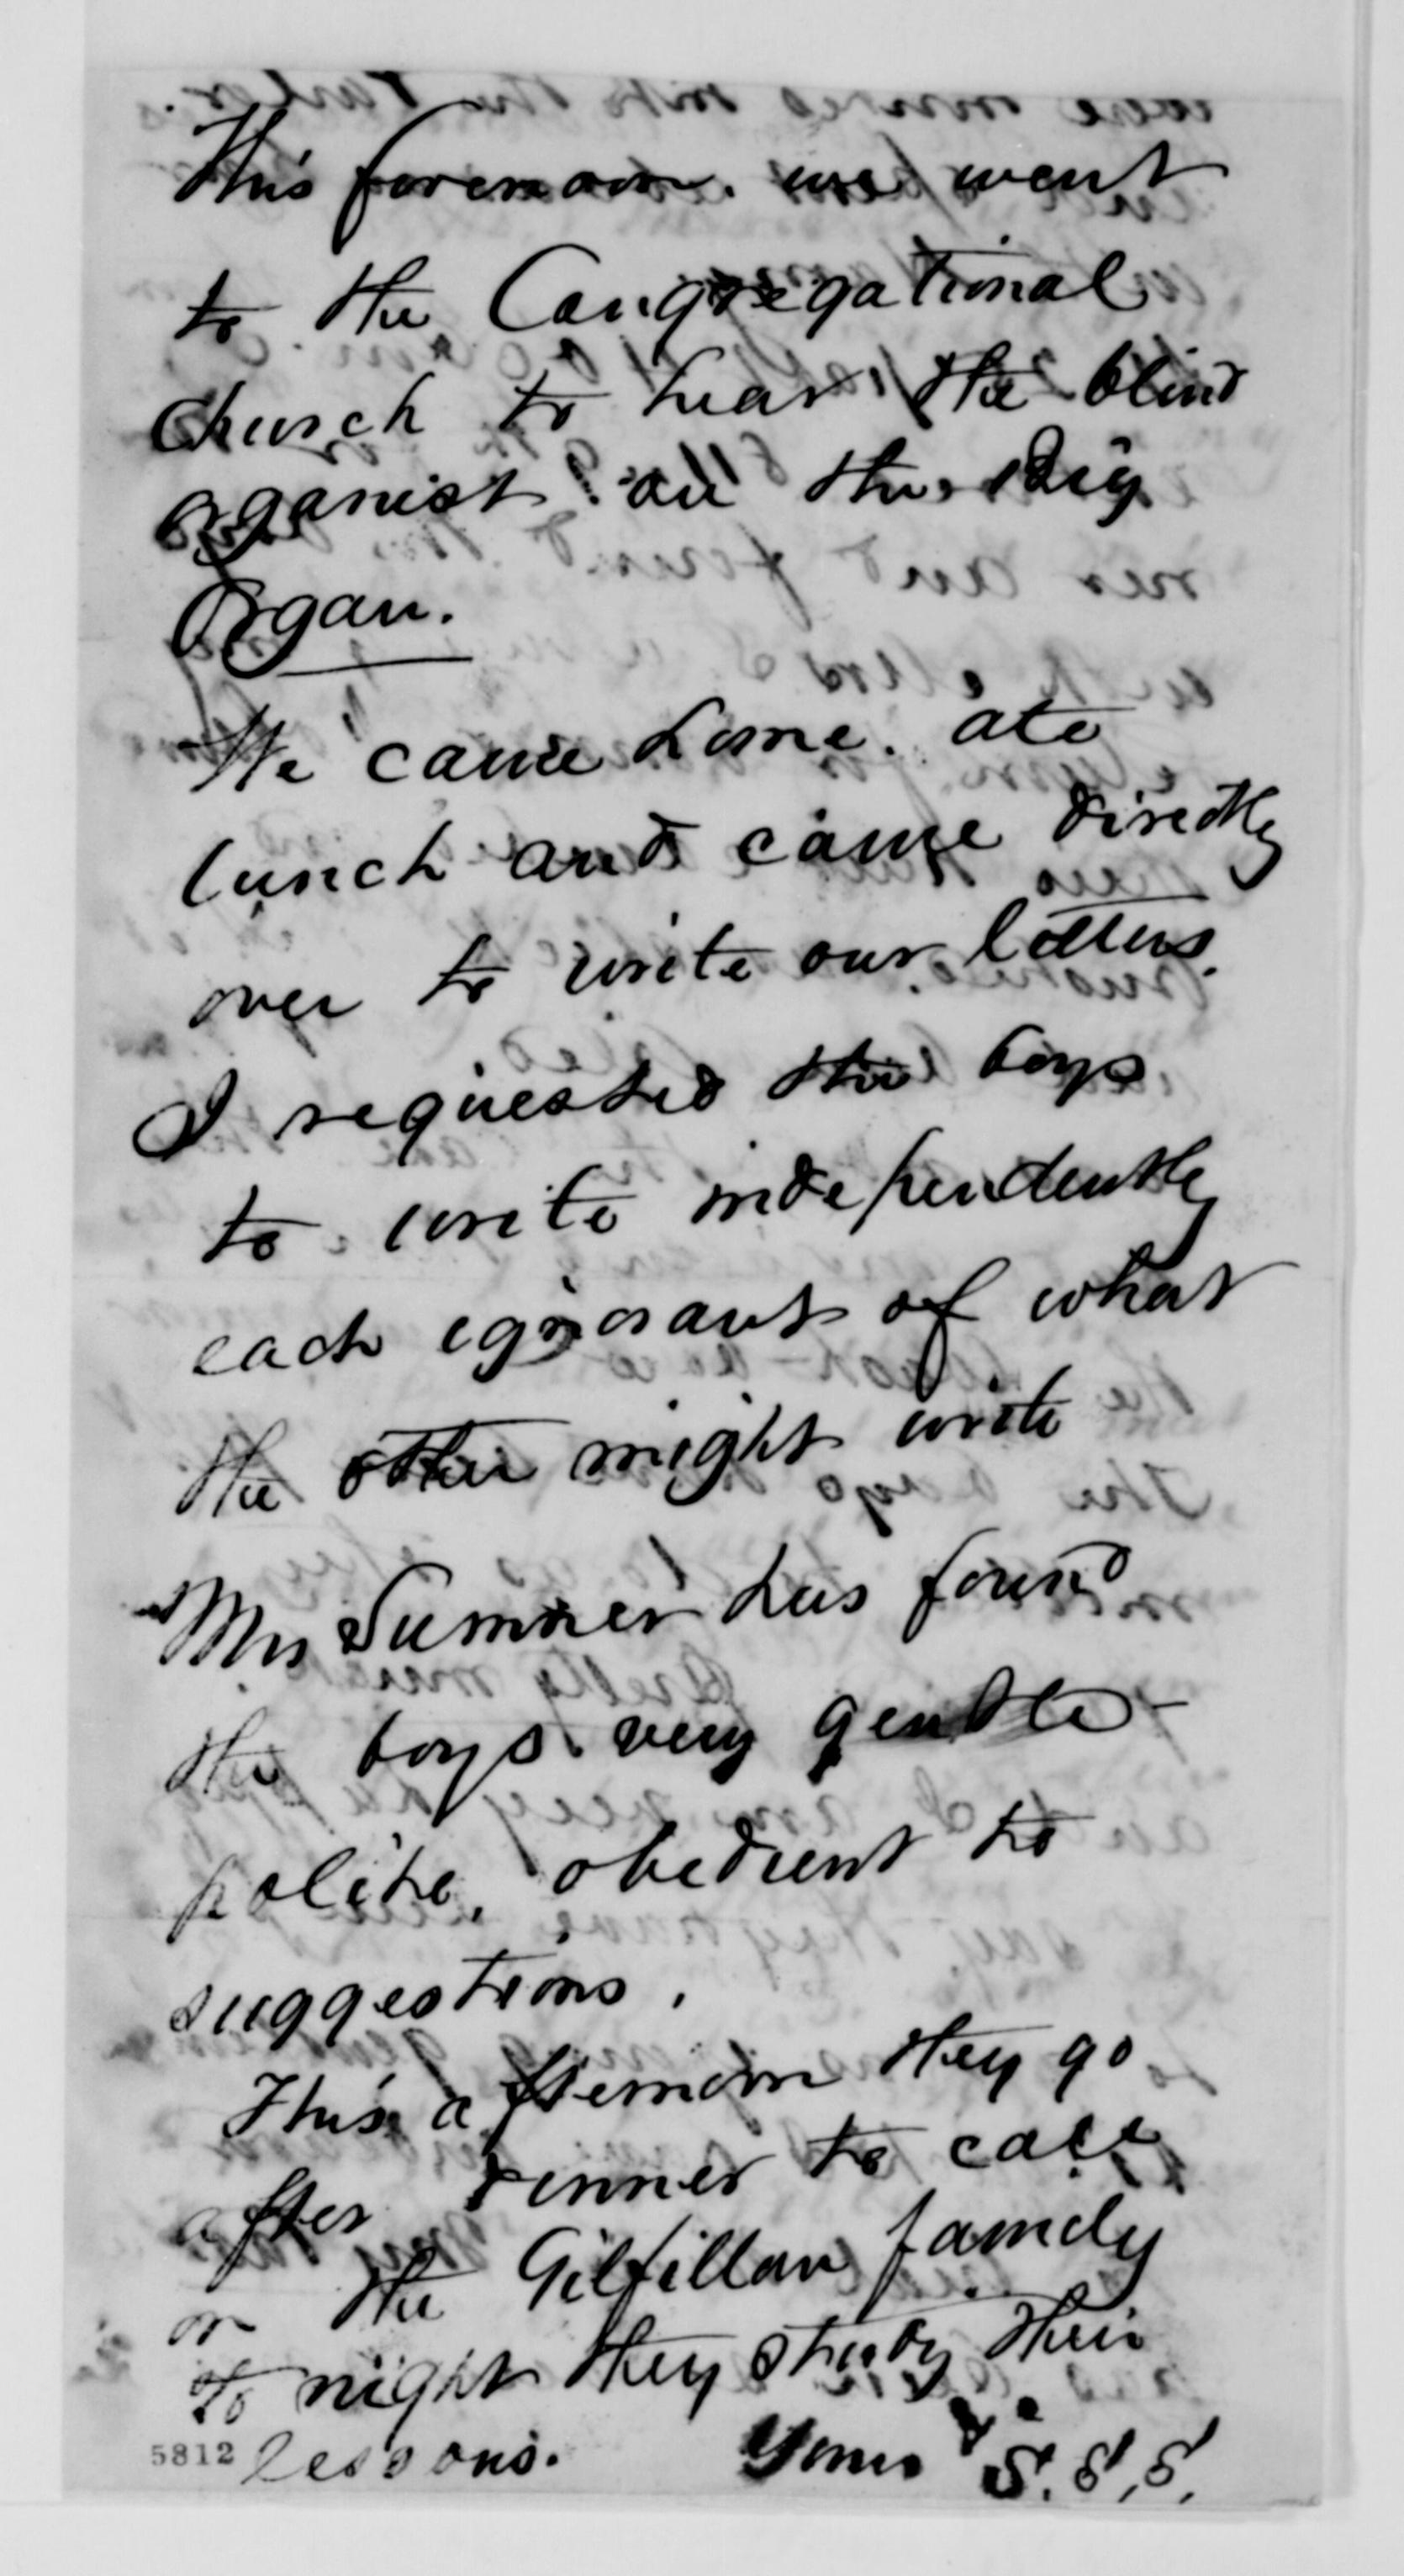 This forenoon we went
to the Congregational
Church to hear the blind
organist on the big
Organ.
We came home. ate
lunch and came directly
over to write our letters.
I requested the boys
to write independently
each ignorant of what
the other might write
Mrs Sumner has found
the boys very gentle -
polite, obedient to
suggestions.
This afternoon they go
after dinner to call
on the Gilfillan family
to night they study their
5812 lessons. Yours S. S. S.